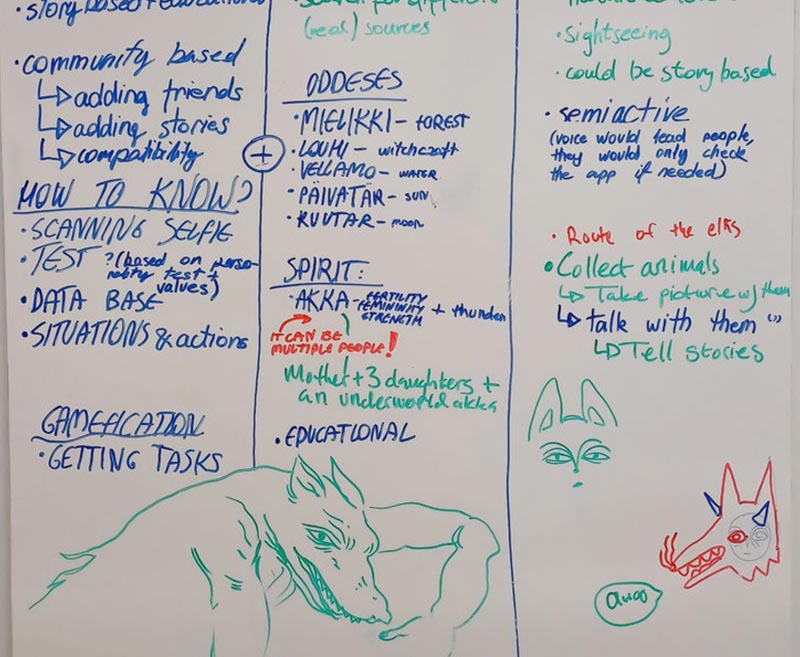 · story based + educational
· community based
↳ adding friends
↳ adding stories
↳ compatibility
HOW TO KNOW?
· SCANNING SELFIE
· TEST ? (based on perso-
nality test +
values)
· DATA BASE
· SITUATIONS & actions
GAMEFICATION
· GETTING TASKS
(real) sources
+
ODDESES
· MIELIKKI – FOREST
· LOUHI – witchcraft
· VELLAMO – WATER
· PÄIVATÄR – SUN
· KUUTAR – moon
SPIRIT:
· AKKA – FERTILITY
FEMININITY + thunder
STRENGTH
IT CAN BE
MULTIPLE PEOPLE!
Mother + 3 daughters +
an underworld akka
· EDUCATIONAL
· Sightseeing
· could be story based
· semiactive
(voice would lead people,
they would only check
the app if needed)
· Route of the elks
· Collect animals
↳ Take picture w/ them
↳ talk with them
↳ Tell stories
awoo